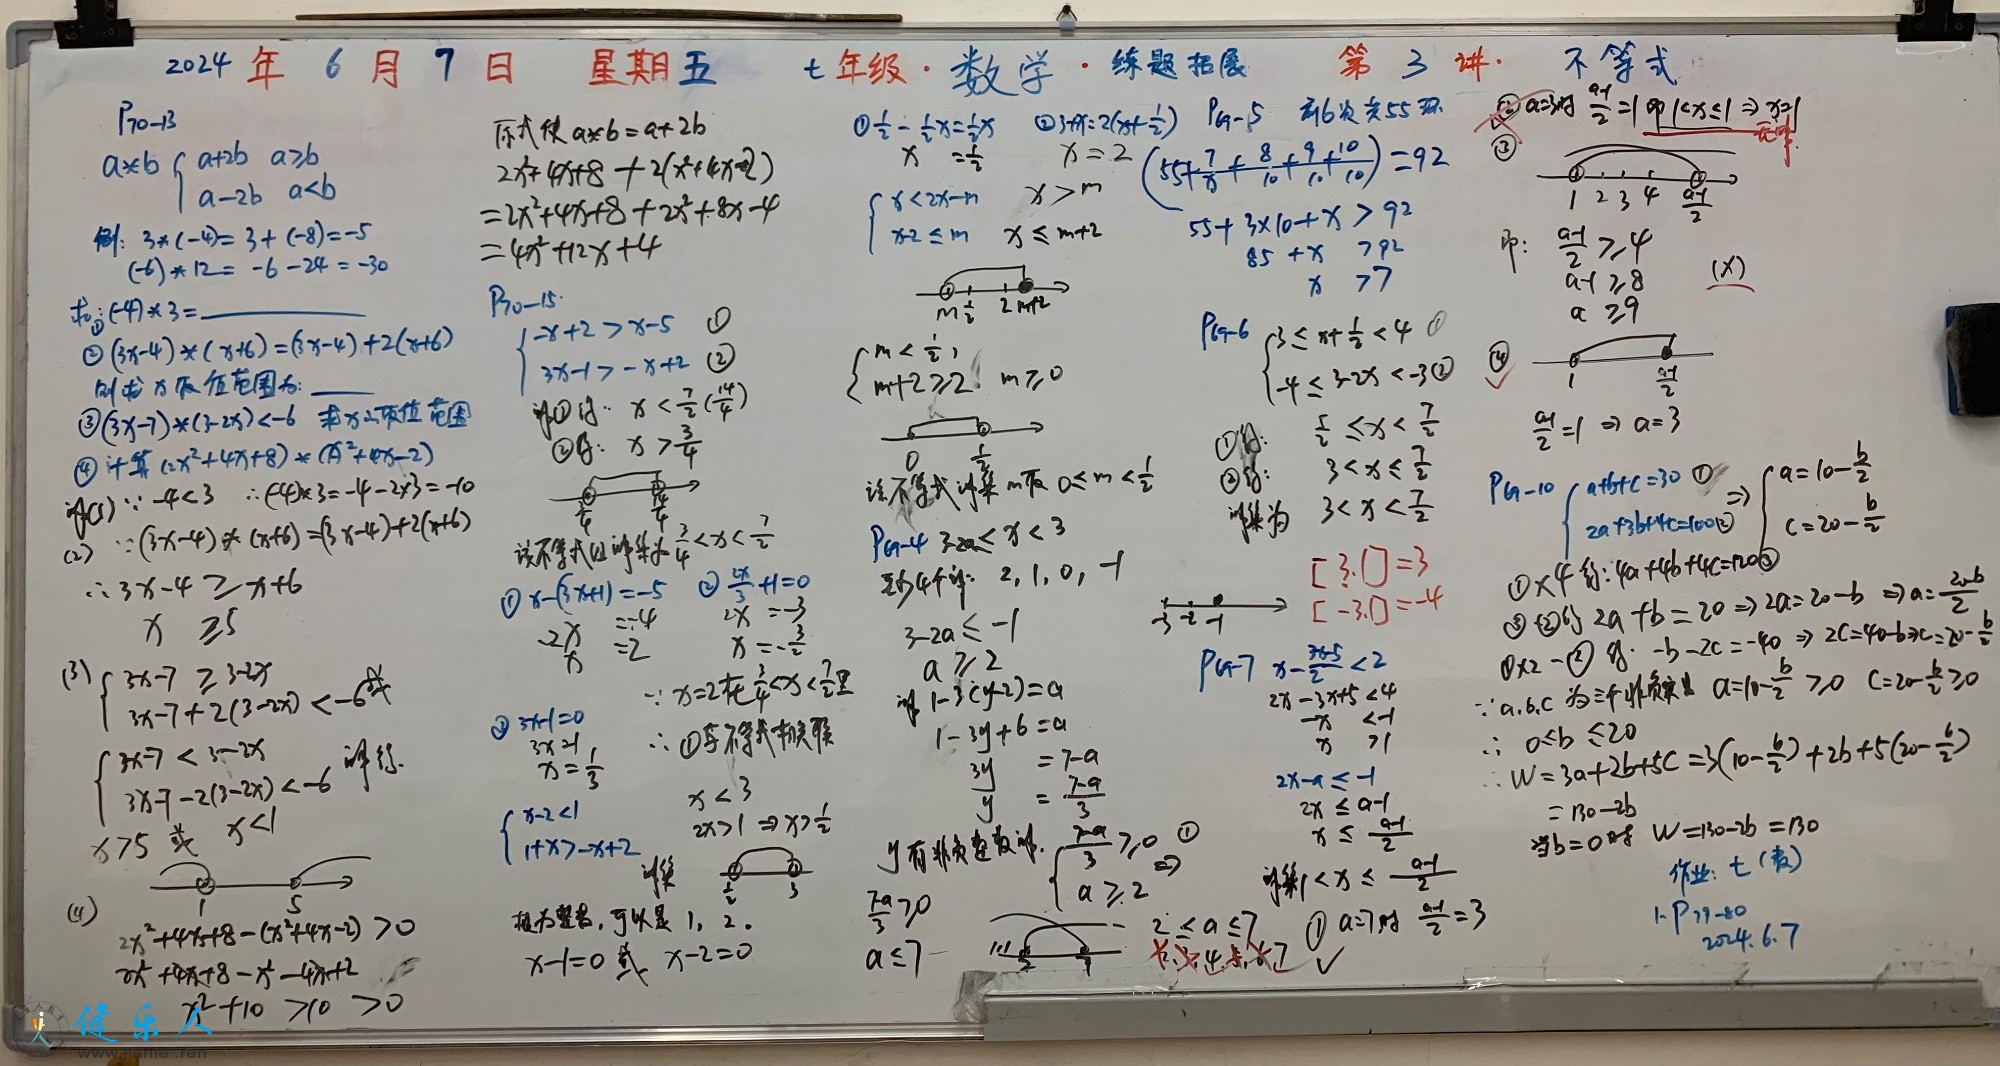 2024年6月7日 星期五 七年级·数学·练题拓展 第3讲·不等式
P70-13
a*b { a+2b a≥b
a-2b a<b
例: 3*(-4)=3+(-8)=-5
(-6)*12=-6-24=-30
求:①(-4)*3=______
②(3x-4)*(x+6)=(3x-4)+2(x+6)
则求x取值范围为:____
③(3x-7)*(3-2x)<-6 求x的取值范围
④计算(2x²+4x+8)*(x²+4x-2)
解(1) ∵-4<3 ∴(-4)*3=-4-2×3=-10
(2) ∵(3x-4)*(x+6)=(3x-4)+2(x+6)
∴3x-4≥x+6
x≥5
(3) { 3x-7≥3-2x
3x-7+2(3-2x)<-6 或
{ 3x-7<3-2x
3x-7-2(3-2x)<-6 解得.
x>5 或 x<1
1 5
(4)
2x²+4x+8-(x²+4x-2)>0
2x²+4x+8-x²-4x+2
x²+10>10>0
原式使a*b=a+2b
2x²+4x+8+2(x²+4x-2)
=2x²+4x+8+2x²+8x-4
=4x²+12x+4
P70-15.
{ -x+2>x-5 ①
3x-1>-x+2 ②
解①得: x<7/2(14/4)
②得: x>3/4
3/4 14/4
该不等式组解集为3/4<x<7/2
①x-(3x+1)=-5 ②2x/3+1=0
-2x=-4 2x=-3
x=2 x=-3/2
∵x=2在3/4<x<7/2里
③3x-1=0
3x=1
x=1/3
∴①与不等式有关联
{ x-2<1
1+x>-x+2
x<3
2x>1⇒x>1/2
解集
1/2 3
根为整数,可以是1, 2.
x-1=0或 x-2=0
①1/2-1/2x=1/2x ②3+x=2(x+1/2)
x=1/2 x=2
{ x<2x-m x>m
x-2≤m x≤m+2
m 1/2 2 m+2
{ m<1/2,
m+2≥2 m≥0
0 1/2
该不等式解集m取0≤m<1/2
P69-4 3-2a≤x<3
至少4个解: 2, 1, 0, -1
3-2a≤-1
a≥2
解1-3(y-2)=a
1-3y+6=a
3y=7-a
y=7-a/3
y有非负整数解. { 7-a/3≥0 ①
a≥2 ⇒
7-a/3≥0
a≤7
2 7
2≤a≤7
2.3.4.5.6.7
P69-5 前6次共55环
(55+7/x+8/10+9/10+10/10)=92
55+3×10+x>92
85+x>92
x>7
P69-6 { 3≤x+1/2<4 ①
-4≤3-2x<-3 ②
①得: 5/2≤x<7/2
②得: 3<x≤7/2
解集为 3<x<7/2
[3.1]=3
[-3.1]=-4
-3 -2 -1
P69-7 x-3x-5/2<2
2x-3x+5<4
-x<-1
x>1
2x-a≤-1
2x≤a-1
x≤a-1/2
解集1<x≤a-1/2
①a=7时 a-1/2=3 ✓
②a=3时 a-1/2=1 即1<x≤1⇒x=1
无解
③
1 2 3 4 a-1/2
即: a-1/2≥4
a-1≥8 (×)
a≥9
④
✓
1 a-1/2
a-1/2=1⇒a=3
P69-10 { a+b+c=30 ①
2a+3b+4c=100②
⇒ { a=10-b/2
c=20-b/2
①×4得:4a+4b+4c=120③
③-②得 2a+b=20⇒2a=20-b⇒a=20-b/2
①×2-②得. -b-2c=-40⇒2c=40-b⇒c=20-b/2
∵a.b.c为三个非负实数 a=10-b/2≥0 c=20-b/2≥0
∴0≤b≤20
∴W=3a+2b+5c=3(10-b/2)+2b+5(20-b/2)
=130-2b
当b=0时 W=130-2b=130
作业: 七(数)
1.P79-80
2024.6.7
健乐人